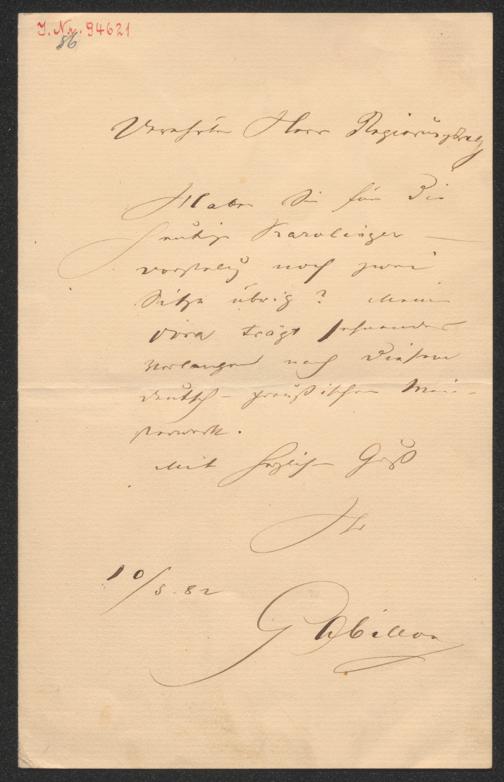 J. Nr. 94621
86
Verehrter Herr Regierungsrath
Haben Sie für die
heutige Karolinger
vorstellg noch zwei
Sitze übrig? Meine
Dora trägt sehnendes
Verlangen nach diesem
deutsch-preußischen Mei-
sterwerk.
Mit herzlichem Gruß
Ihr
10/5.82
GGabillon